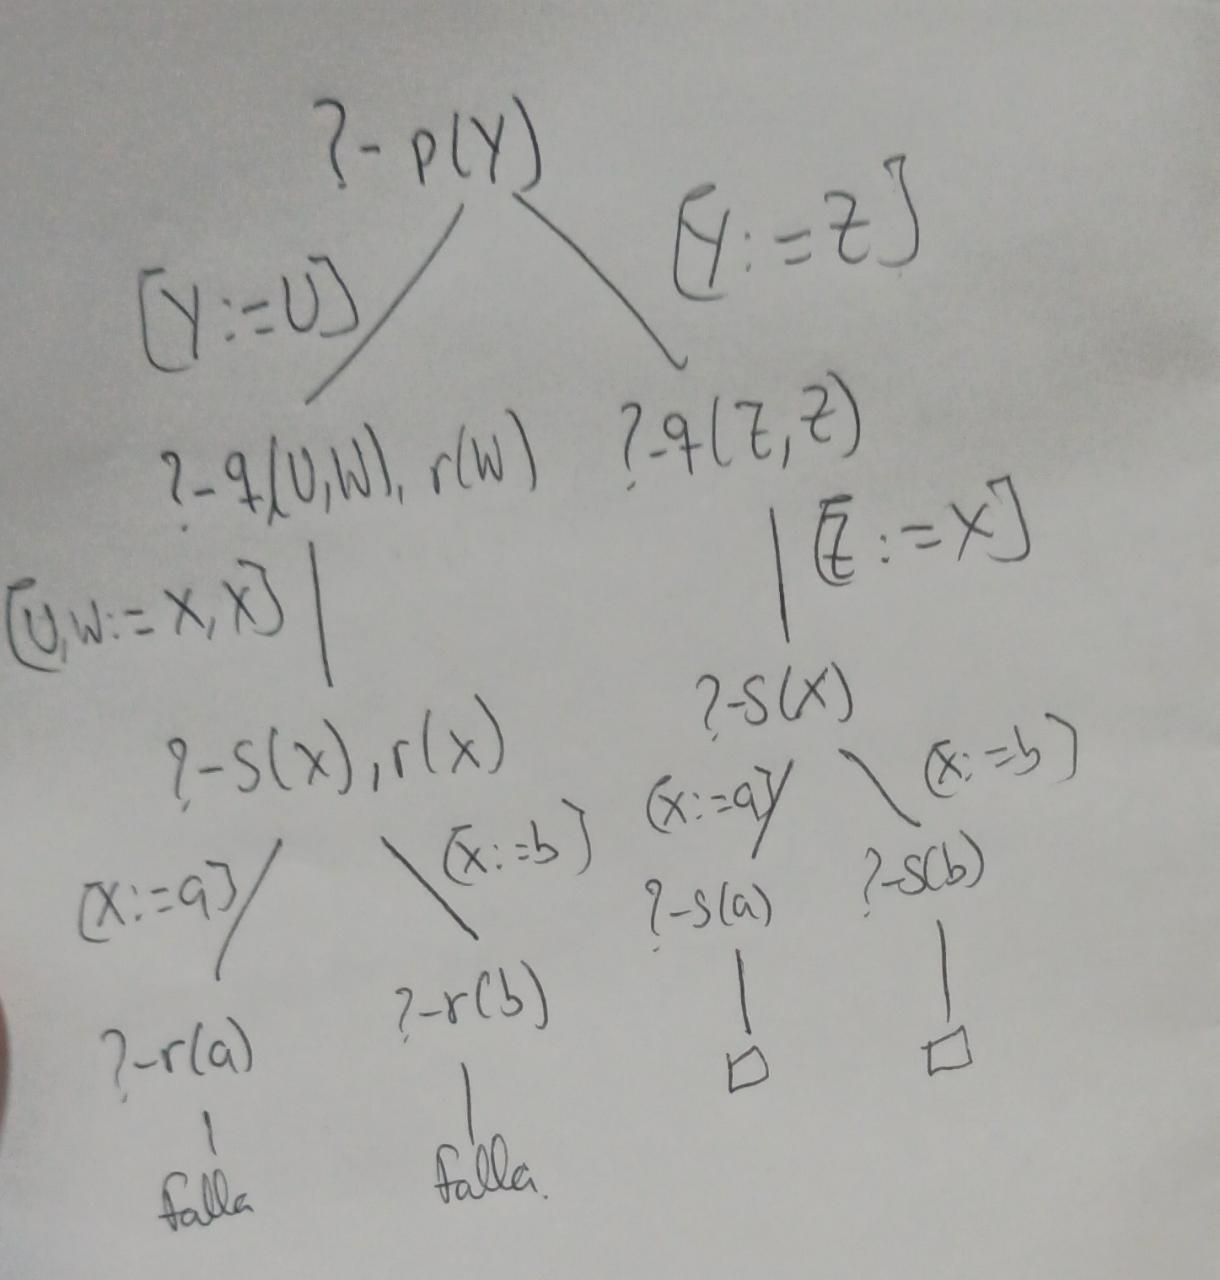 ?- p(Y)
[Y:=U]
[Y:=Z]
?-q(U,W), r(W)
?-q(Z,Z)
[U,W:=X,X]
[Z:=X]
?-s(x),r(x)
?-s(X)
[X:=a]
[X:=b]
[X:=a]
[X:=b]
?-r(a)
?-r(b)
?-s(a)
?-s(b)
falla
falla.